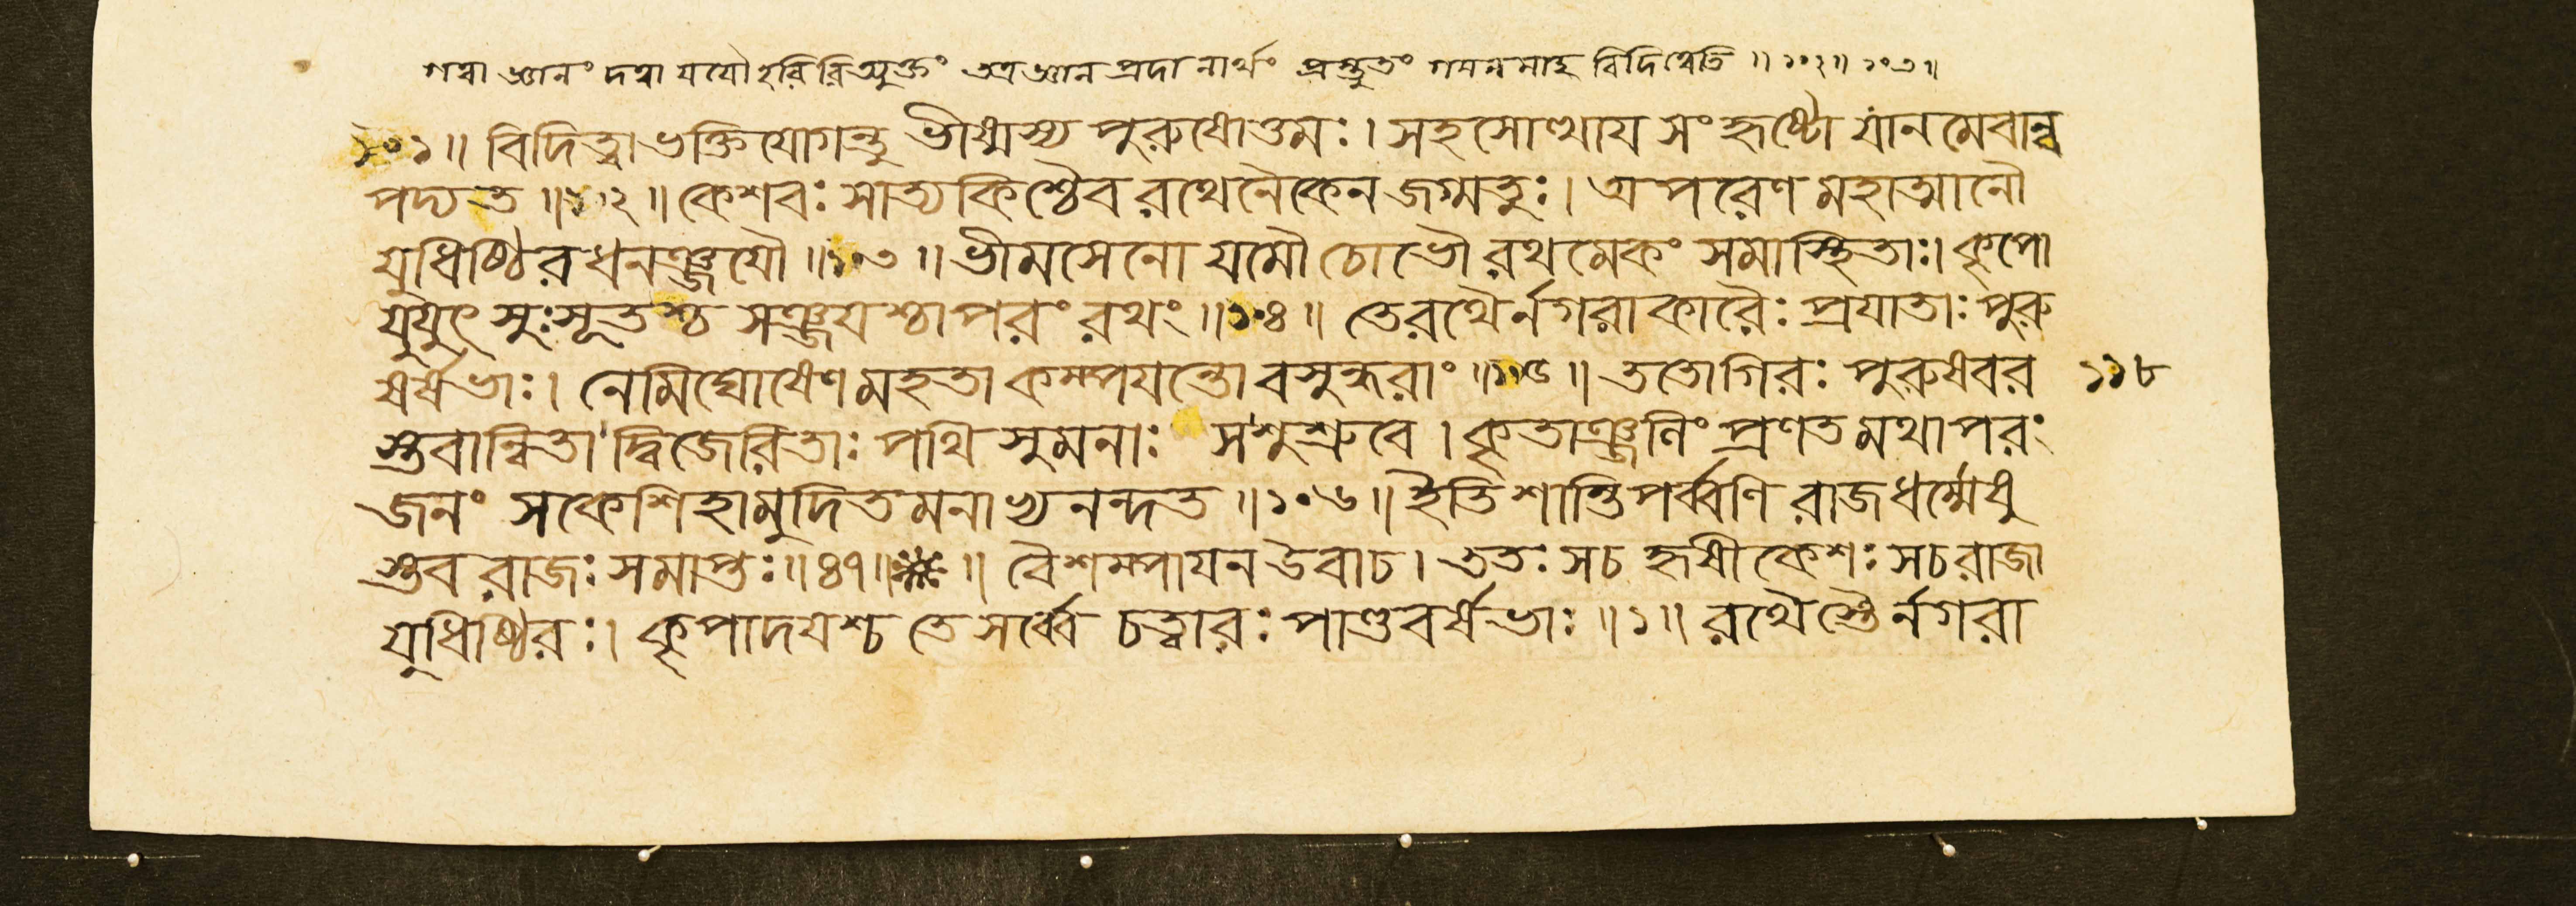 গত্বা জ্ঞানং দত্বা যযৌ হরিরিত্যুক্তং তত্র জ্ঞান প্রদানার্থং প্রস্তুতং গমনমাহ বিদিত্বেতি ॥ ১০২॥ ১০৩॥
১০১॥ বিদিত্বা ভক্তিযোগন্তু ভীষ্মস্য পুরুষোত্তমঃ। সহসোত্থায সংহৃষ্টো যানমেবান্ব
পদ্যত ॥১০২॥ কেশবঃ সাত্যকিশ্চৈব রথেনৈকেন জগ্মতুঃ। অপরেণ মহাত্মানৌ
যুধিষ্ঠির ধনঞ্জযৌ ॥১০৩॥ ভীমসেনো যমৌ চোভৌ রথমেকং সমাস্থিতাঃ। কৃপো
যুযুৎসুঃ সূতশ্চ সঞ্জযশ্চাপরং রথং ॥১০৪॥ তে রথৈর্নগরাকারৈঃ প্রযাতাঃ পুরু
ষর্ষভাঃ। নেমিঘোষেণ মহতা কম্পযন্তো বসুন্ধরাং ॥১০৫॥ ততো গিরঃ পুরুষবর ১১৮
স্তবান্বিতা দ্বিজেরিতাঃ পথি সুমনাঃ স শুশ্রুবে। কৃতাঞ্জলিং প্রণতমথাপরং
জনং স কেশিহা মুদিতমনাভ্যনন্দত ॥১০৬॥ ইতি শান্তিপর্ব্বণি রাজধর্ম্মেষু
স্তব রাজঃ সমাপ্তঃ॥৪৭॥ ॥ বৈশম্পাযন উবাচ। ততঃ স চ হৃষীকেশঃ স চ রাজা
যুধিষ্ঠিরঃ। কৃপাদযশ্চ তে সর্ব্বে চত্বারঃ পাণ্ডবর্ষভাঃ ॥১॥ রথৈস্তৈর্নগরা